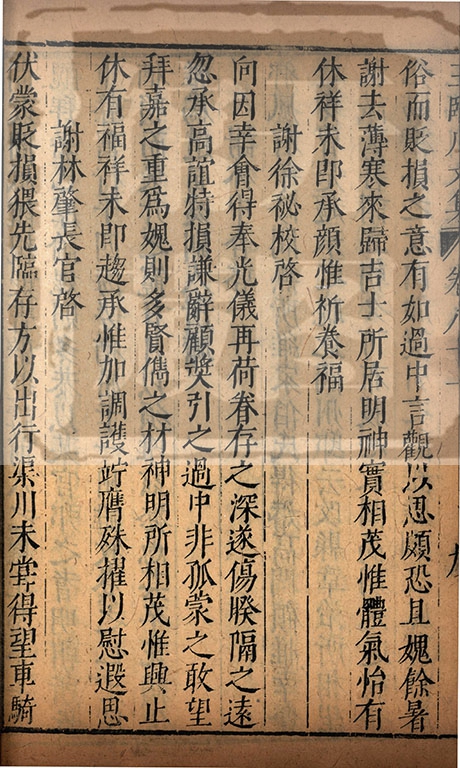 王臨川文集 卷八十一 九
俗而貶損之意有如過中言觀以思顧恐且媿餘暑
謝去薄寒來歸吉士所居明神實相茂惟體氣怡有
休祥未即承顏惟祈養福
謝徐祕校啓
向因幸會得奉光儀再荷眷存之深遂傷睽隔之遠
忽承高誼特損謙辭顧奬引之過中非孤蒙之敢望
拜嘉之重爲媿則多賢儁之材神明所相茂惟興止
休有福祥未即趨承惟加調護竚膺殊擢以慰遐思
謝林肇長官啓
伏蒙貶損猥先臨存方以出行渠川未甞得望車騎